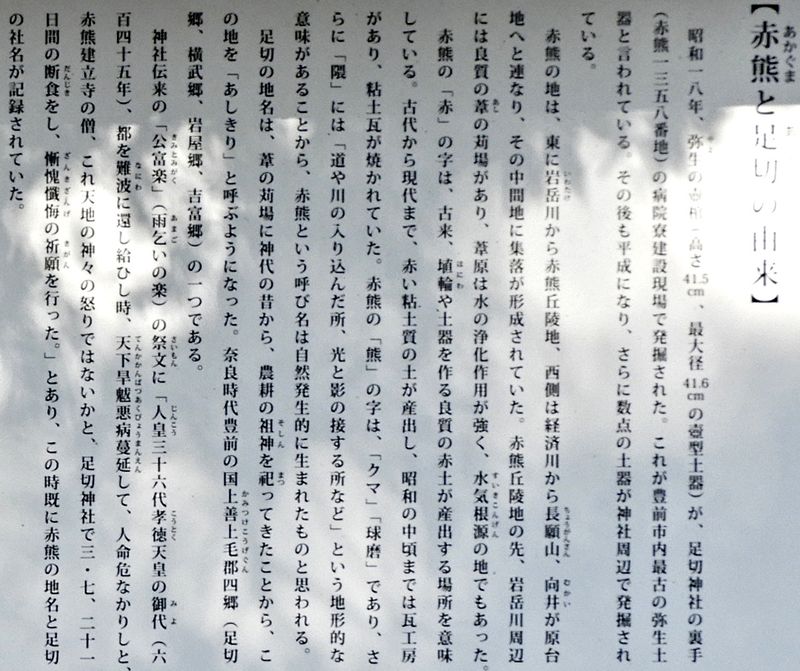 【赤熊と足切の由来】
昭和一八年、弥生の壺棺(高さ41.5cm、最大径41.6cmの壺型土器)が、足切神社の裏手
(赤熊一三五八番地)の病院寮建設現場で発掘された。これが豊前市内最古の弥生土
器と言われている。その後も平成になり、さらに数点の土器が神社周辺で発掘され
ている。
赤熊の地は、東に岩岳川から赤熊丘陵地、西側は経済川から長願山、向井が原台
地へと連なり、その中間地に集落が形成されていた。赤熊丘陵地の先、岩岳川周辺
には良質の葦の苅場があり、葦原は水の浄化作用が強く、水気根源の地でもあった。
赤熊の「赤」の字は、古来、埴輪や土器を作る良質の赤土が産出する場所を意味
している。古代から現代まで、赤い粘土質の土が産出し、昭和の中頃までは瓦工房
があり、粘土瓦が焼かれていた。赤熊の「熊」の字は、「クマ」「球磨」であり、さ
らに「隈」には「道や川の入り込んだ所、光と影の接する所など」という地形的な
意味があることから、赤熊という呼び名は自然発生的に生まれたものと思われる。
足切の地名は、葦の苅場に神代の昔から、農耕の祖神を祀ってきたことから、こ
の地を「あしきり」と呼ぶようになった。奈良時代豊前の国上善上毛郡四郷(足切
郷、横武郷、岩屋郷、吉富郷)の一つである。
神社伝来の「公富楽」(雨乞いの楽)の祭文に「人皇三十六代孝徳天皇の御代(六
百四十五年)、都を難波に還し給ひし時、天下旱魃悪病蔓延して、人命危なかりしと、
赤熊建立寺の僧、これ天地の神々の怒りではないかと、足切神社で三・七、二十一
日間の断食をし、慚愧懺悔の祈願を行った。」とあり、この時既に赤熊の地名と足切
の社名が記録されていた。